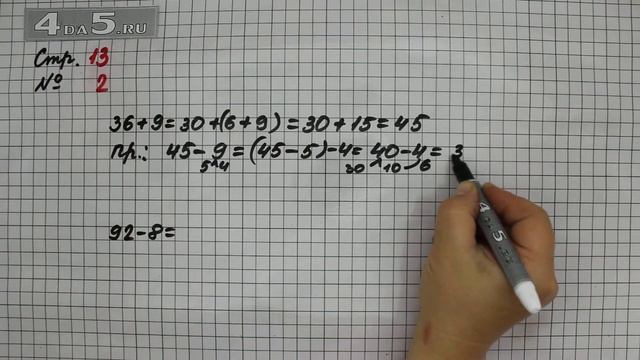 4DA5.RU
Стр. 13
№ 2
36+9=30+(6+9)=30+15=45
пр.: 45-9=(45-5)-4=40-4=3
5 4 30 10 6
92-8=
4DA5.RU